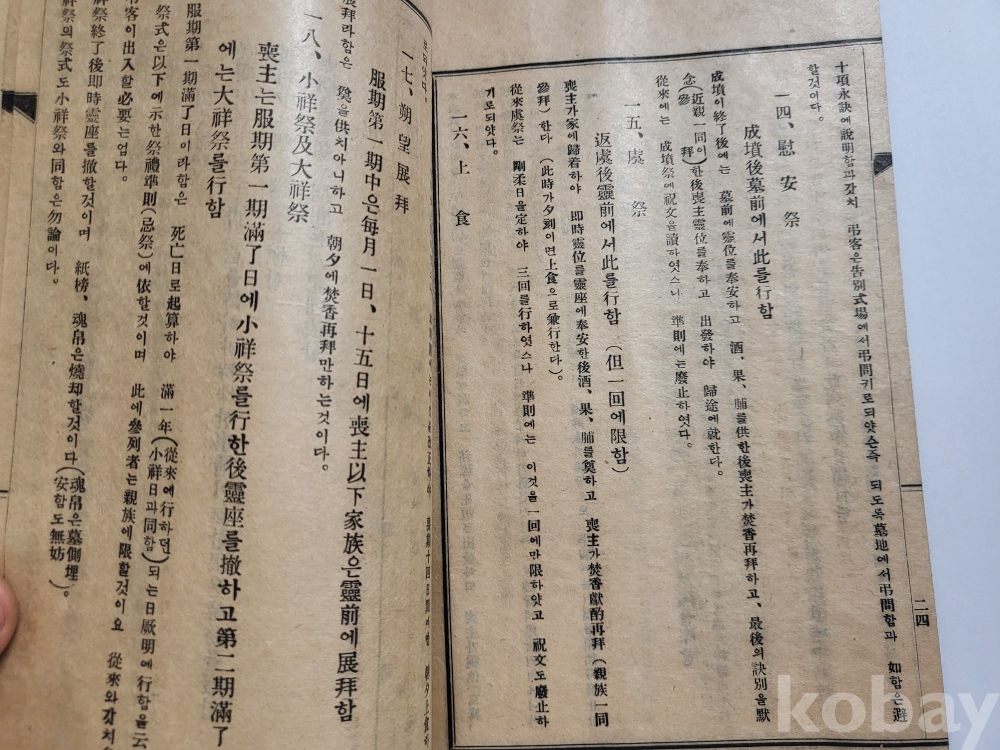 十項永訣에說明함과갓치 弔客은告別式場에서弔問키로되얏슨즉 되도록墓地에서弔問함과 如함은避
할것이다。
一四、慰安祭
成墳後墓前에서此를行함
成墳이終了後에는 墓前에靈位를奉安하고 酒、果、脯를供한後喪主가焚香再拜하고、最後의訣別을默
念(近親一同이參拜)한後喪主靈位를奉하고 出發하야 歸途에就한다。
從來에는 成墳祭에祝文을讀하엿스나 準則에는廢止하엿다。
一五、虞祭
返虞後靈前에서此를行함(但一回에限함)
喪主가家에歸着하야 即時靈位를靈座에奉安한後酒、果、脯를奠하고 喪主가焚香獻酌再拜(親族一同
參拜)한다(此時가夕刻이면上食으로兼行한다)。
從來虞祭는 剛柔日을定하야 三回를行하엿스나 準則에는 이것을一回에만限하얏고 祝文도廢止하
기로되얏다。
一六、上食
二四
一七、朔望展拜
服期第一期中은每月一日、十五日에喪主以下家族은靈前에展拜함
展拜라함은 奠을供치아니하고 朝夕에焚香再拜만하는것이다。
一八、小祥祭及大祥祭
喪主는服期第一期滿了日에小祥祭를行한後靈座를撤하고第二期滿了
에는大祥祭를行함
服期第一期滿了日이라함은 死亡日로起算하야 滿一年(從來에行하던小祥日과同함)되는日厥明에行함을云
祭式은以下에示한祭禮準則(忌祭)에依할것이며 此에參列者는親族에限할것이요 從來와갓치
弔客이出入할必要는업다。
祥祭終了後即時靈座를撤할것이며 紙榜、魂帛은燒却할것이다(魂帛은墓側埋安함도無妨)。
祥祭의祭式도小祥祭와同함은勿論이다。
kobay